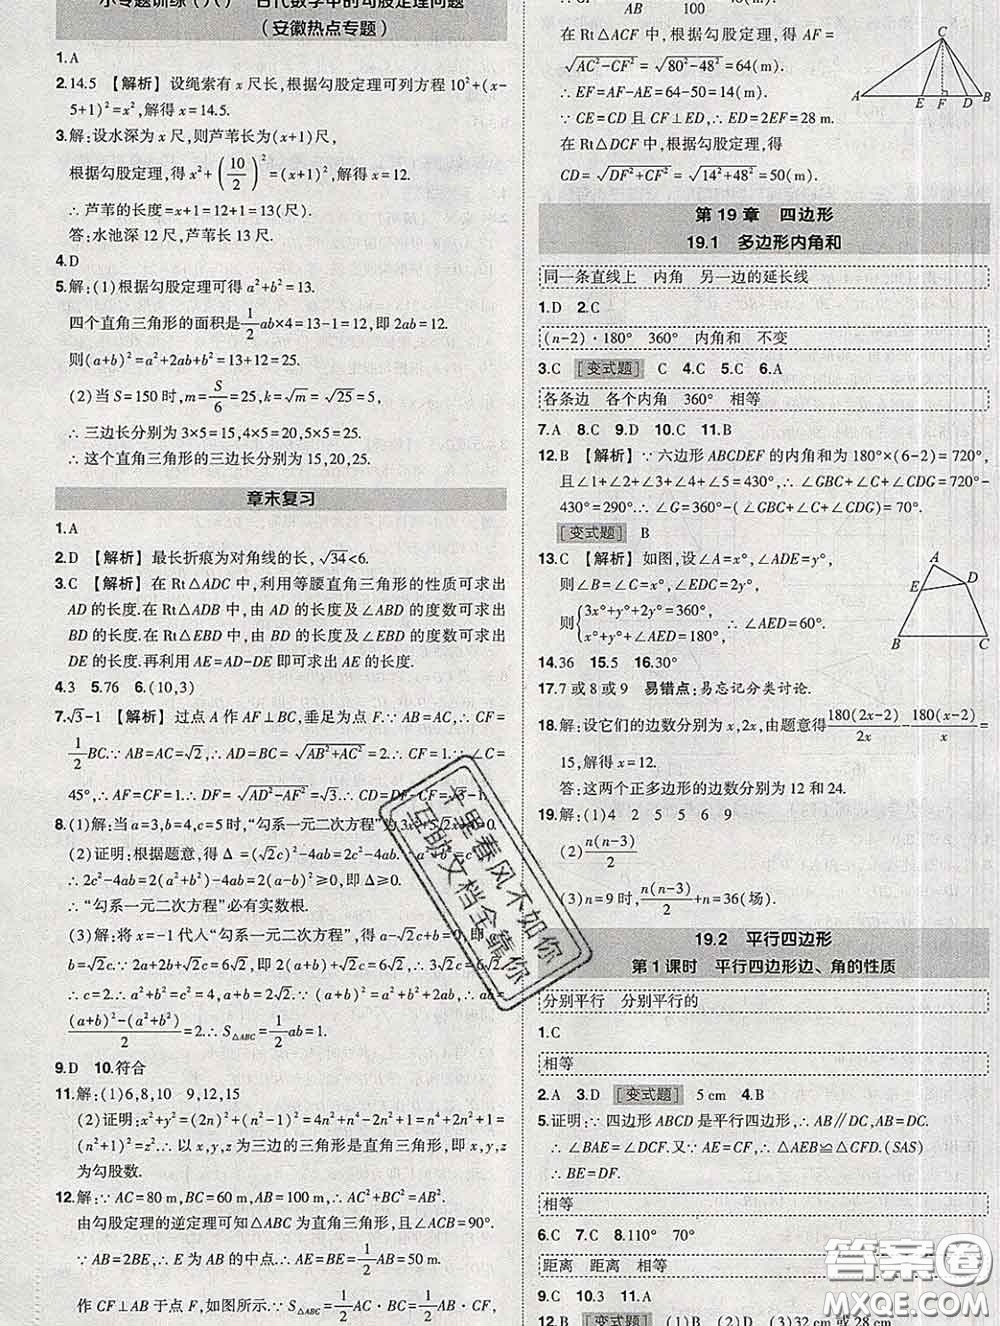 小专题训练(八) 古代数学中的勾股定理问题
(安徽热点专题)
1.A
2.14.5 【解析】设绳索有 x 尺长,根据勾股定理可列方程 10²+(x-
5+1)²=x²,解得 x=14.5.
3.解:设水深为 x 尺,则芦苇长为(x+1)尺,
根据勾股定理,得 x²+(10/2)²=(x+1)²,解得 x=12.
∴芦苇的长度=x+1=12+1=13(尺).
答:水池深 12 尺,芦苇长 13 尺.
4.D
5.解:(1)根据勾股定理可得 a²+b²=13.
四个直角三角形的面积是 1/2 ab×4=13-1=12,即 2ab=12.
则(a+b)²=a²+2ab+b²=13+12=25.
(2)当 S=150 时,m=S/6=25,k=√m=√25=5,
∴三边长分别为 3×5=15,4×5=20,5×5=25.
∴这个直角三角形的三边长分别为 15,20,25.
章末复习
1.A
2.D 【解析】最长折痕为对角线的长,√34<6.
3.C 【解析】在 Rt△ADC 中,利用等腰直角三角形的性质可求出
AD 的长度.在 Rt△ADB 中,由 AD 的长度及∠ABD 的度数可求出
BD 的长度.在 Rt△EBD 中,由 BD 的长度及∠EBD 的度数可求出
DE 的长度.再利用 AE=AD-DE 即可求出 AE 的长度.
4.3 5.76 6.(10,3)
7.√3-1 【解析】过点 A 作 AF⊥BC,垂足为点 F.∵AB=AC,∴CF=
1/2 BC.∵AB=AC=√2,∴AD=BC=√(AB²+AC²)=2.∴CF=1.∵∠C=
45°,∴AF=CF=1.∴DF=√(AD²-AF²)=√3.∴CD=DF-CF=√3-1.
8.(1)解:当 a=3,b=4,c=5 时,“勾系一元二次方程”为 3x²+5√2x+4=0.
(2)证明:根据题意,得 Δ=(√2c)²-4ab=2c²-4ab.∵a²+b²=c²,
∴2c²-4ab=2(a²+b²)-4ab=2(a-b)²≥0,即 Δ≥0.
∴“勾系一元二次方程”必有实数根.
(3)解:将 x=-1 代入“勾系一元二次方程”,得 a-√2c+b=0,即 a+
b=√2c.∵2a+2b+√2c=6,∴2√2c+√2c=6.
∴c=2.∴a²+b²=c²=4,a+b=2√2.∴ab=
((a+b)²-(a²+b²))/2=2.∴S△ABC=1/2 ab=1.
9.D 10.符合
11.解:(1)6,8,10 9,12,15
(2)证明:x²+y²=(2n)²+(n²-1)²=4n²+n⁴-2n²+1=n⁴+2n²+1=
(n²+1)²=z².∴以 x,y,z 为三边的三角形是直角三角形,即 x,y,z
为勾股数.
12.解:∵AC=80 m,BC=60 m,AB=100 m,∴AC²+BC²=AB².
由勾股定理的逆定理可知△ABC 为直角三角形,且∠ACB=90°.
∵AB=2BE,∴E 为 AB 的中点.∴AE=BE=1/2 AB=50 m.
作 CF⊥AB 于点 F,如图所示.∵S△ABC=1/2 AC·BC=1/2 AB·CF,
在 Rt△ACF 中,根据勾股定理,得 AF=
√(AC²-CF²)=√(80²-48²)=64(m).
∴EF=AF-AE=64-50=14(m).
∵CE=CD 且 CF⊥ED,∴ED=2EF=28 m.
在 Rt△CDF 中,根据勾股定理,得
CD=√(DF²+CF²)=√(14²+48²)=50(m).
C
A E F D B
第 19 章 四边形
19.1 多边形内角和
同一条直线上 内角 另一边的延长线
1.D 2.C
(n-2)·180° 360° 内角和 不变
3.C [变式题] C 4.C 5.C 6.A
各条边 各个内角 360° 相等
7.A 8.C 9.D 10.C 11.B
12.B 【解析】∵六边形 ABCDEF 的内角和为 180°×(6-2)=720°,
且∠1+∠2+∠3+∠4+∠5=430°,∴∠GBC+∠C+∠CDG=720°-
430°=290°.∴∠G=360°-(∠GBC+∠C+∠CDG)=70°.
[变式题] B
13.C 【解析】如图,设∠A=x°,∠ADE=y°,
则∠B=∠C=x°,∠EDC=2y°,
则{3x°+y°+2y°=360°, x°+y°+∠AED=180°, ∴∠AED=60°.
A
E D
B C
14.36 15.5 16.30°
17.7 或 8 或 9 易错点:易忘记分类讨论.
18.解:设它们的边数分别为 x,2x,由题意得 180(2x-2)/2x - 180(x-2)/x =
15,解得 x=12.
答:这两个正多边形的边数分别为 12 和 24.
19.解:(1)4 2 5 5 6 9
(2) n(n-3)/2
(3)n=9 时, n(n-3)/2 +n=36(场).
19.2 平行四边形
第 1 课时 平行四边形边、角的性质
分别平行 分别平行的
1.C
相等
2.A 3.D [变式题] 5 cm 4.B
5.证明:∵四边形 ABCD 是平行四边形,∴AB∥DC,AB=DC.
∴∠BAE=∠DCF.又∵AE=CF,∴△AEB≌△CFD.(SAS)
∴BE=DF.
相等
6.C 7.C 8.110° 70°
距离 距离 相等
9.C 10.3 11.A
12.B [变式题] (1)B (2)D (3)32 cm 或 28 cm
十里春风不如你
互助文档全靠你
答案圈
MXQE.COM